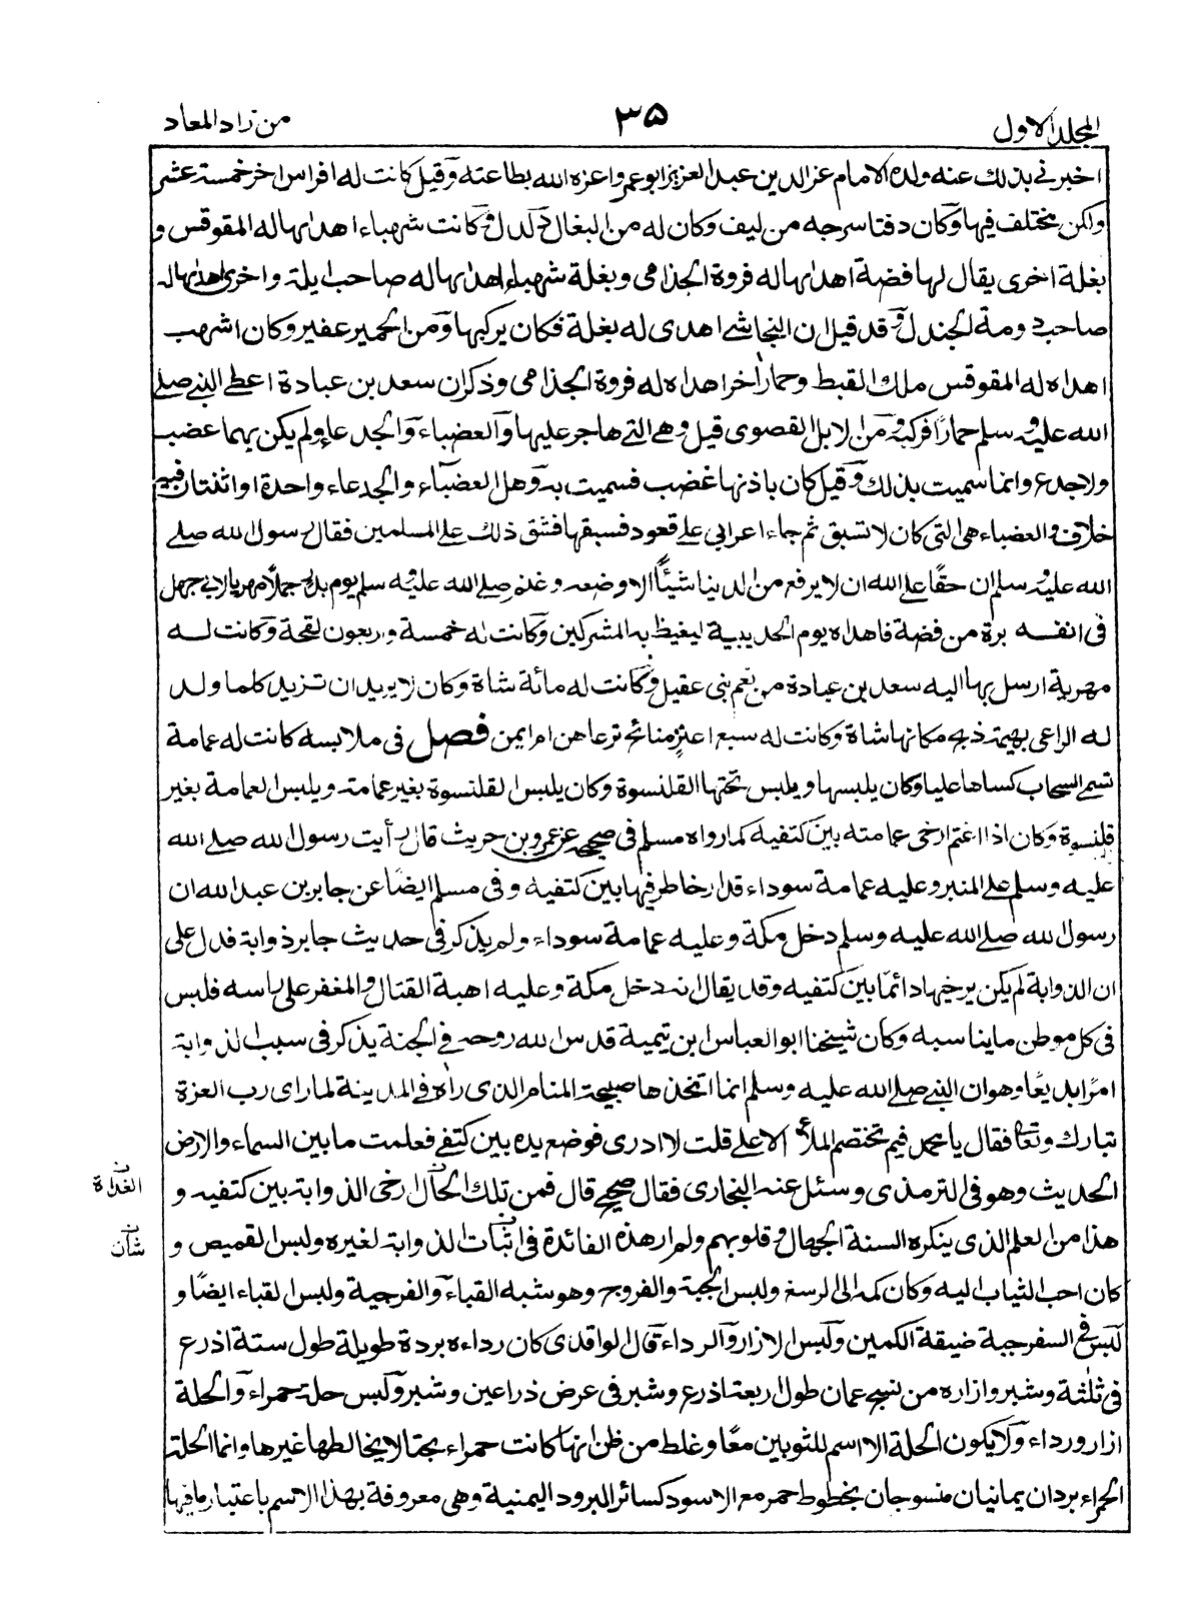 المجلد الاول
۳۵
من زاد المعاد
اخبرني بذلك عنه ولده الامام عز الدين عبد العزيز ابو عمرو اعزه الله بطاعته وقيل كانت له افراس اخر خمسة عشر
ولكن مختلف فيها وكان دفتا سرجه من ليف وكان له من البغال دلدل وكانت شهباء اهداها له المقوقس و
بغلة اخرى يقال لها فضة اهداها له فروة الجذامى وبغلة شهباء اهداها له صاحب ايلة واخرى اهداها له
صاحب دومة الجندل وقد قيل ان النجاشى اهدى له بغلة فكان يركبها ومن الحمير عفير وكان اشهب
اهداه له المقوقس ملك القبط وحمارا اخر اهداه له فروة الجذامى وذكر ان سعد بن عبادة اعطى النبى صلى
الله عليه وسلم حمارا فركبه ومن الابل القصوى قيل وهى التى هاجر عليها والعضباء والجدعاء ولم يكن بهما عضب
ولا جدع وانما سميت بذلك وقيل كان باذنها غضب فسميت به وهل العضباء والجدعاء واحدة او اثنتان فيه
خلاف والعضباء هى التى كان لا تسبق ثم جاء اعرابى على قعود فسبقها فشق ذلك على المسلمين فقال رسول لله صلى
الله عليه وسلم ان حقا على الله ان لا يرفع من الدنيا شيئا الا وضعه وغنم صلى الله عليه وسلم يوم بدر جملا مهريا لابى جهل
فى انفه برة من فضة فاهداه يوم الحديبية ليغيظ به المشركين وكانت له خمسة واربعون لقحة وكانت له
مهرية ارسل بها اليه سعد بن عبادة من نعم بنى عقيل وكانت له مائة شاة وكان لا يريد ان تزيد كلما ولد
له الراعى بهيمة ذبح مكانها شاة وكانت له سبع اعنز منائح ترعاهن ام ايمن فصل فى ملابسه كانت له عمامة
تسمى السحاب كساها عليا وكان يلبسها ويلبس تحتها القلنسوة وكان يلبس القلنسوة بغير عمامة ويلبس العمامة بغير
قلنسوة وكان اذا اعتم ارخى عمامته بين كتفيه كما رواه مسلم فى صحيحه عن عمرو بن حريث قال رأيت رسول الله صلى الله
عليه وسلم على المنبر وعليه عمامة سوداء قد ارخا طرفيها بين كتفيه وفى مسلم ايضا عن جابر بن عبد الله ان
رسول لله صلى الله عليه وسلم دخل مكة وعليه عمامة سوداء ولم يذكر فى حديث جابر ذوابة فدل على
ان الذوابة لم يكن يرخيها دائما بين كتفيه وقد يقال انه دخل مكة وعليه اهبة القتال والمغفر على راسه فلبس
فى كل موطن ما يناسبه وكان شيخنا ابو العباس ابن تيمية قدس الله روحه فى الجنة يذكر فى سبب الذوابة
امرا بديعا وهو ان النبى صلى الله عليه وسلم انما اتخذها صبيحة المنام الذى راه فى المدينة لما راى رب العزة
تبارك وتعا فقال يا محمد فيم تختصم الملأ الاعلى قلت لا ادرى فوضع يده بين كتفى فعلمت ما بين السماء والارض
الحديث وهو فى الترمذى وسئل عنه البخارى فقال صحيح قال فمن تلك الحال ارخى الذوابة بين كتفيه و
الغداة
هذا من العلم الذى ينكره السنة الجهال وقلوبهم ولم ار هذه الفائدة فى اثبات الذوابة لغيره ولبس القميص و
شأن
كان احب الثياب اليه وكان كمه الى الرسغ ولبس الجبة والفروج وهو شبه القباء والفرجية ولبس القباء ايضا و
لبس فى السفر جبة ضيقة الكمين ولبس الازار والرداء قال الواقدى كان رداءه بردة طويلة طول ستة اذرع
فى ثلثة وشبر وازاره من نسج عمان طول اربعة اذرع وشبر فى عرض ذراعين وشبر ولبس حلة حمراء والحلة
ازار ورداء ولا يكون الحلة الا اسم للثوبين معا وغلط من ظن انها كانت حمراء بحتا لا يخالطها غيرها وانما الحلة
الحمراء بردان يمانيان منسوجان بخطوط حمر مع الاسود كسائر البرود اليمنية وهى معروفة بهذا الاسم باعتبار ما فيها